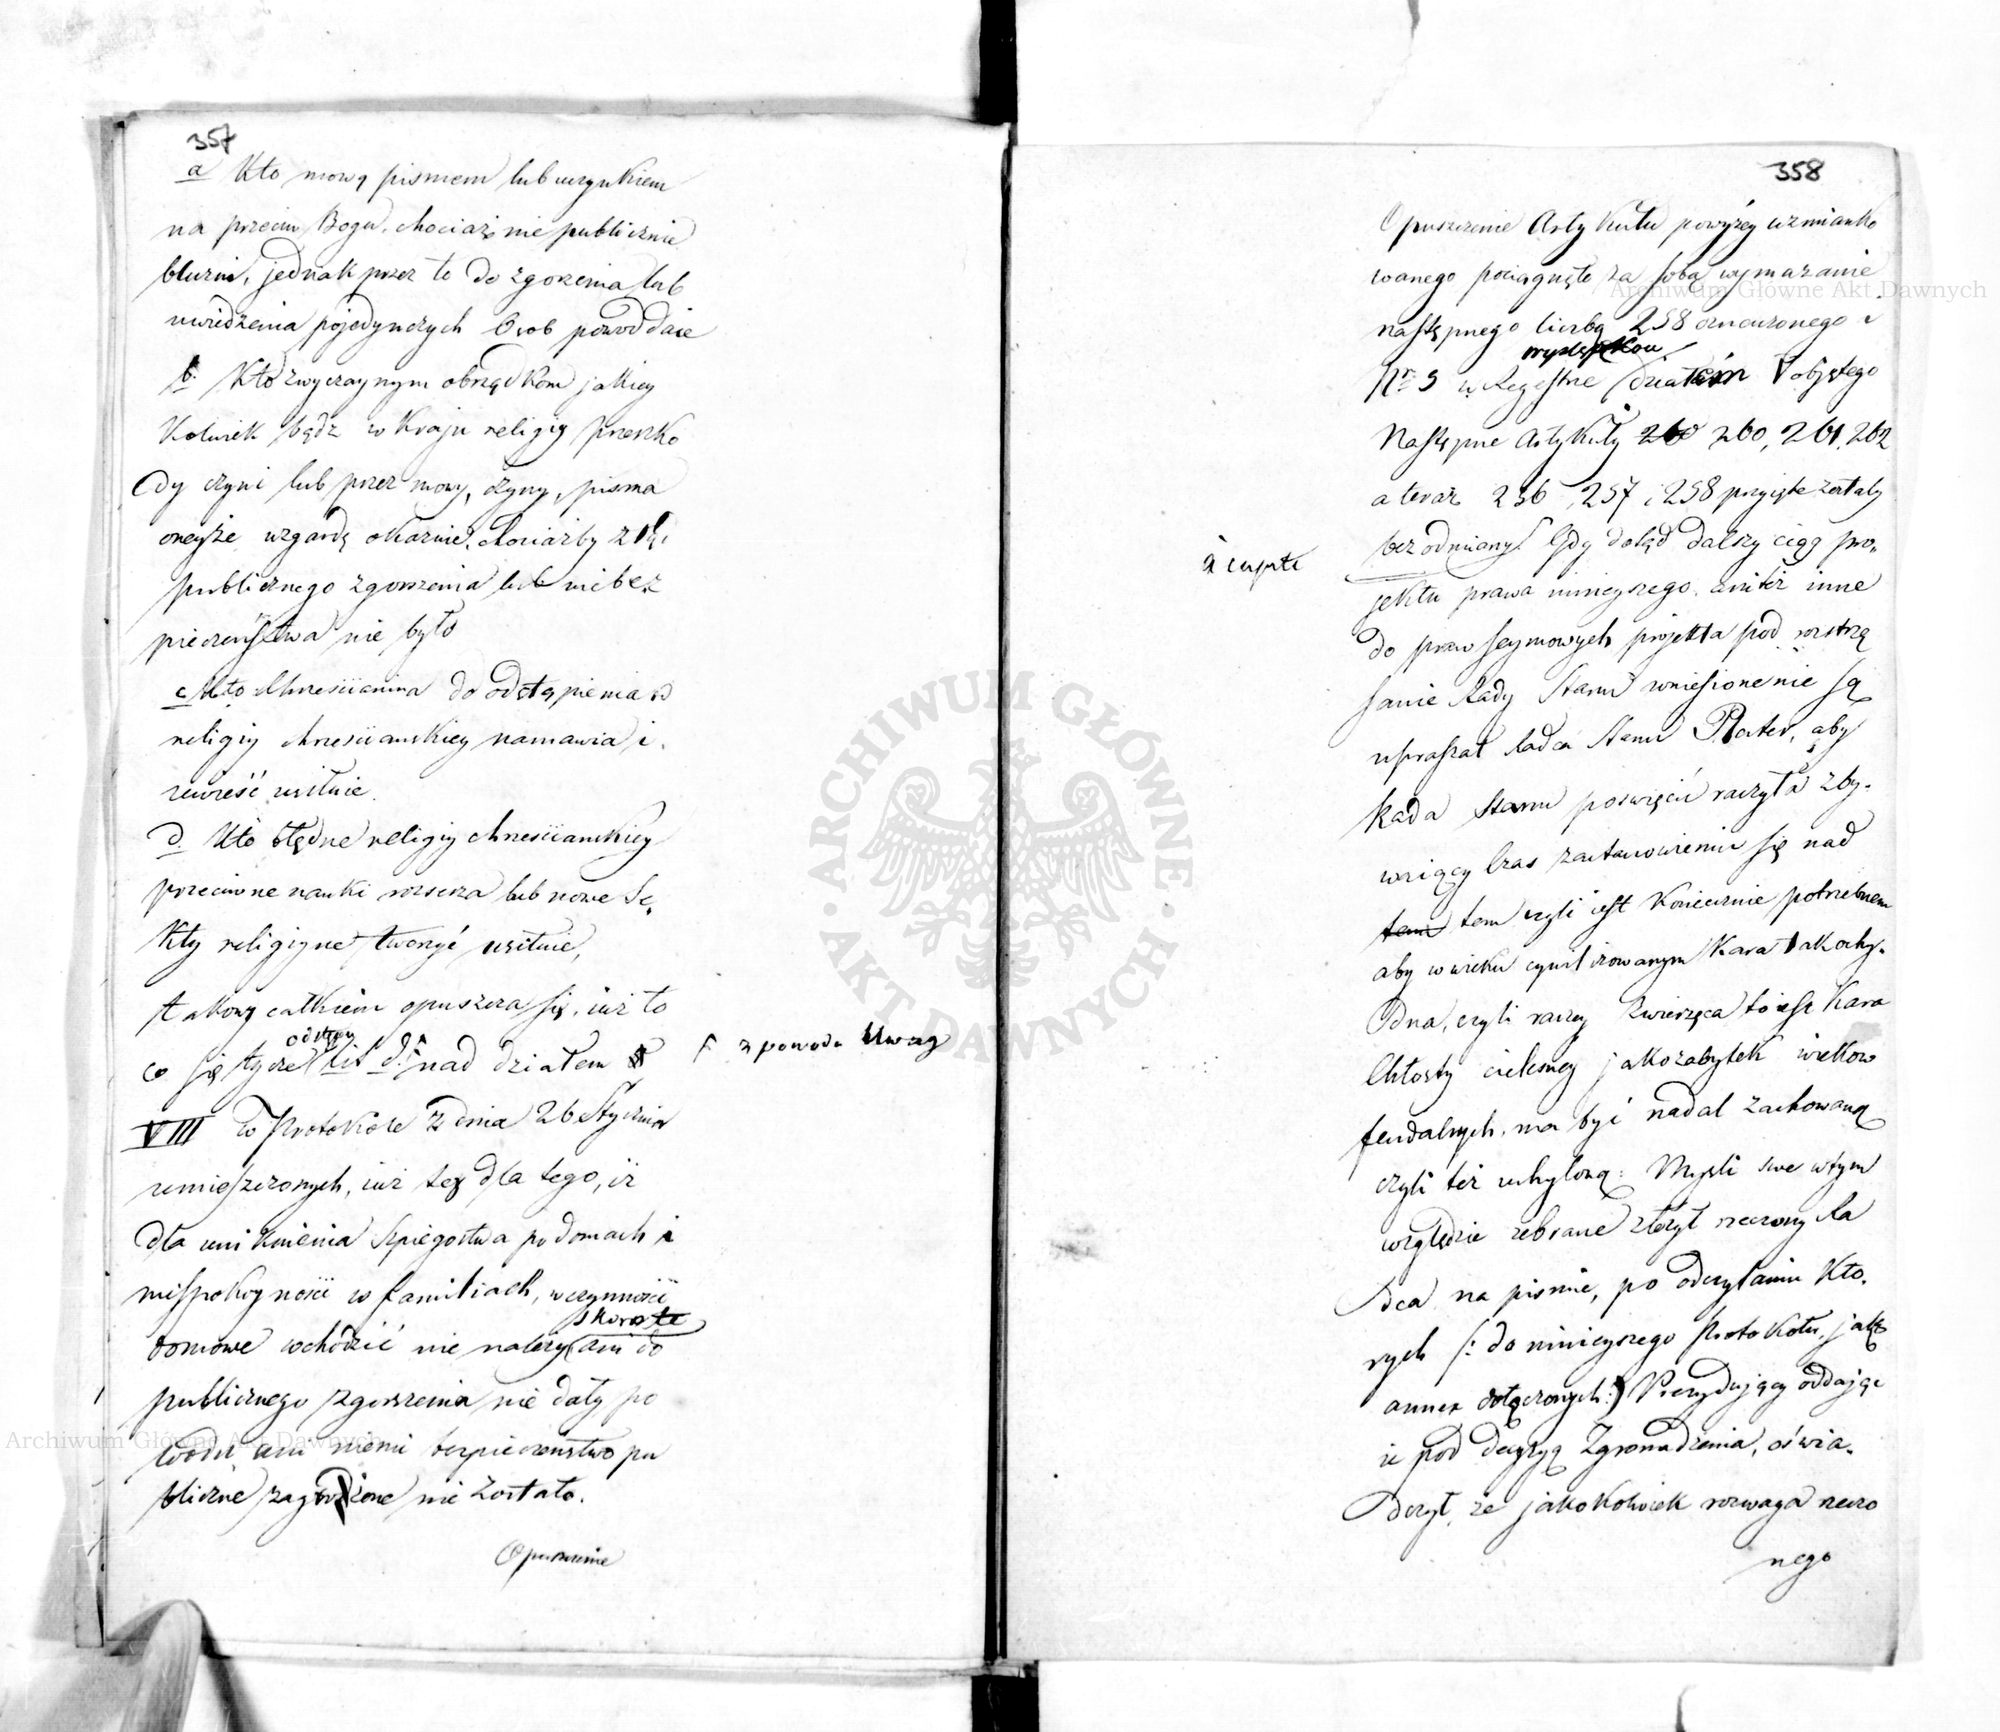 357
a Kto mową pismem lub uczynkiem
na przeciw Bogu, chociaż nie publicznie
bluzni, jednak przez to do zgorszenia lub
uwiedzenia pojedynczych Osob powod daie
b. Kto zwyczaynym obrządkom jakiey
kolwiek bądź w Kraju religiy przeszko
dy czyni lub przez mowy, czyny, pisma
oneyże wzgardę okazuie, chociażby ztąd
publicznego zgorszenia lub niebez
pieczeństwa nie było
c Kto Chrześcianina do odstąpienia od
religiy chrześcianskiey namawia i
uwieść usiłuie.
d. Kto błędne religiy chrześcianskiey
przeciwne nauki rozsiewa lub nowe Se,
kty religiyne tworzyć usiłuie,
całkiem opuszcza się, iuż to
odstępu
co się tycze lit d. nad działem
z powodu Uwag
VIII w Protokole z dnia 26 Stycznia
umieszczonych, iuż też dla tego, iż
dla uniknienia Szpiegostwa po domach i
niespokoyności w familiach, w czynności
skoro te
domowe wchodzić nie należy ani do
publicznego zgorszenia nie dały po
wodu ani niemi bezpieczenstwo pu
bliczne zagrożone nie zostało.
Opuszczenie
358
Opuszczenie Artykułu powyżey wzmianko
wanego pociągnęło za sobą wymazanie
następnego liczbą 258 oznaczonego i
występkow
Nr 5 w Regestrze działem V objętego
Następne Artykuły 260 260, 261, 262
a teraz 256, 257 i 258 przyięte zostały
bez odmiany. Gdy dotąd dalszy ciąg pro,
à capite
jektu prawa ninieyszego, ani też inne
do praw Seymowych projekta pod rozstrzą
sanie Rady Stanu wniesione nie są
upraszał Radca Stanu Plater, aby
Rada Stanu poswięcić raczyła zby,
waiący Czas zastanowieniu się nad
tem tem czyli iest koniecznie potrzebnem
aby w wieku cywilizowanym Kara tak ohy,
dna, czyli raczey zwierzęca to iest Kara
Chłosty cielesney jako zabytek wiekow
feudalnych, ma być nadal zachowaną
czyli też uchyloną: Mysli swe w tym
względzie zebrane złożył rzeczony Ra
dca na pismie, po odczytaniu kto,
rych /: do ninieyszego Protokołu, jako
annex dołączonych:/ Prezyduiący oddając
ie pod decyzyą Zgromadzenia, oświa,
dczył, że jakokolwiek rozwaga rzeczo
nego
Archiwum Główne Akt Dawnych
Archiwum Główne Akt Dawnych
ARCHIWUM GŁÓWNE · AKT DAWNYCH ·